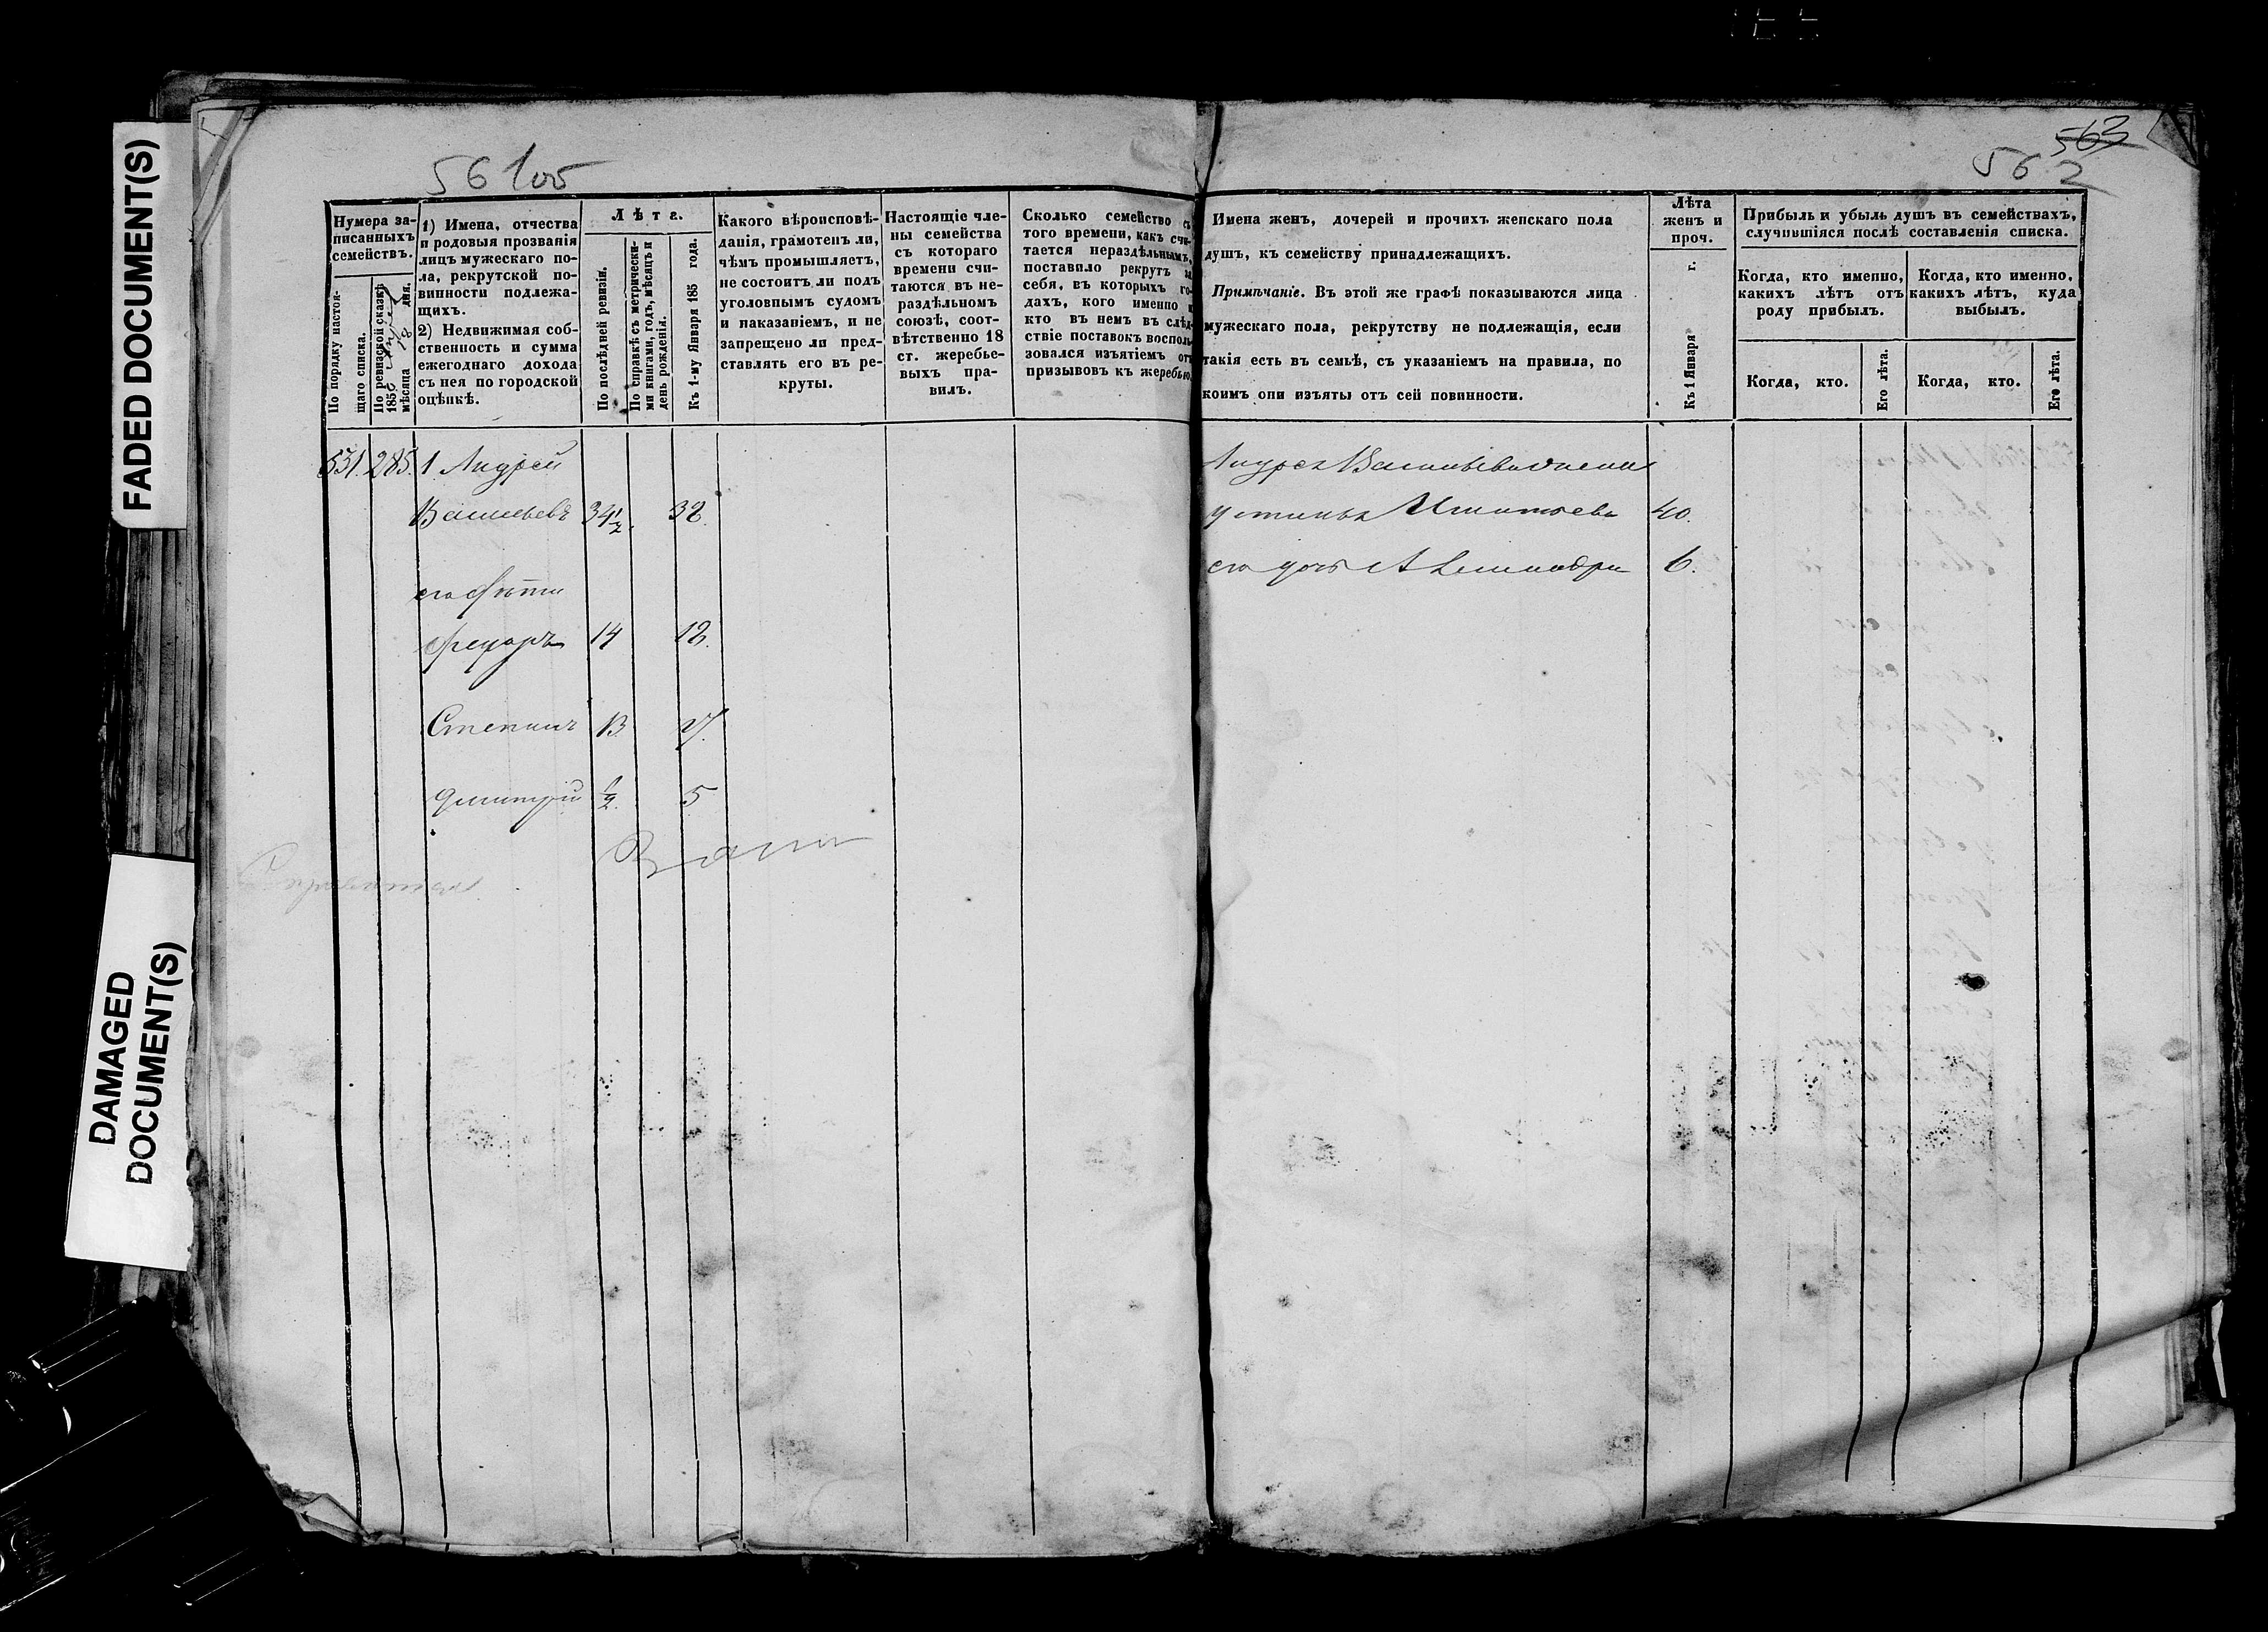 FADED DOCUMENT(S)
DAMAGED
DOCUMENT(S)
561 об
563
562
Нумера за-
писанныхъ
семействъ.
По порядку настоя-
щаго списка.
По ревизской сказкѣ
185
мѣсяца 8 дня.
1) Имена, отчества
и родовыя прозванія
лицъ мужескаго по-
ла, рекрутской по-
винности подлежа-
щихъ.
2) Недвижимая соб-
ственность и сумма
ежегоднаго дохода
съ нея по городской
оцѣнкѣ.
Лѣта.
По послѣдней ревизіи.
По справкѣ съ метрически-
ми книгами, годъ, мѣсяцъ и
день рожденія.
Къ 1-му Января 185 года.
Какого вѣроисповѣ-
данія, грамотенъ ли,
чѣмъ промышляетъ,
не состоитъ ли подъ
уголовнымъ судомъ
и наказаніемъ, и не
запрещено ли пред-
ставлять его въ ре-
круты.
Настоящіе чле-
ны семейства
съ котораго
времени счи-
таются въ не-
раздѣльномъ
союзѣ, соот-
вѣтственно 18
ст. жеребье-
выхъ пра-
вилъ.
Сколько семейство съ
того времени, какъ счи-
тается нераздѣльнымъ,
поставило рекрутъ за
себя, въ которыхъ го-
дахъ, кого именно и
кто въ немъ въ слѣд-
ствіе поставокъ восполь-
зовался изъятіемъ отъ
призывовъ къ жеребью.
Имена женъ, дочерей и прочихъ женскаго пола
душъ, къ семейству принадлежащихъ.
Примѣчаніе. Въ этой же графѣ показываются лица
мужескаго пола, рекрутству не подлежащія, если
такія есть въ семьѣ, съ указаніемъ на правила, по
коимъ они изъяты отъ сей повинности.
Лѣта
женъ и
проч.
Къ 1 Января г.
Прибыль и убыль душъ въ семействахъ,
случившіяся послѣ составленія списка.
Когда, кто именно,
какихъ лѣтъ отъ
роду прибылъ.
Когда, кто именно,
какихъ лѣтъ, куда
выбылъ.
Когда, кто.
Его лѣта.
Когда, кто.
Его лѣта.
531. 285. 1 Андрей
Васильевъ 34½. 38.
его дѣти
Федоръ 14 18.
Степанъ 13. 17.
Дмитрій ½. 5
Андрея Васильева жена
Устинья Игнатьева 40.
его дочь Александра 6.